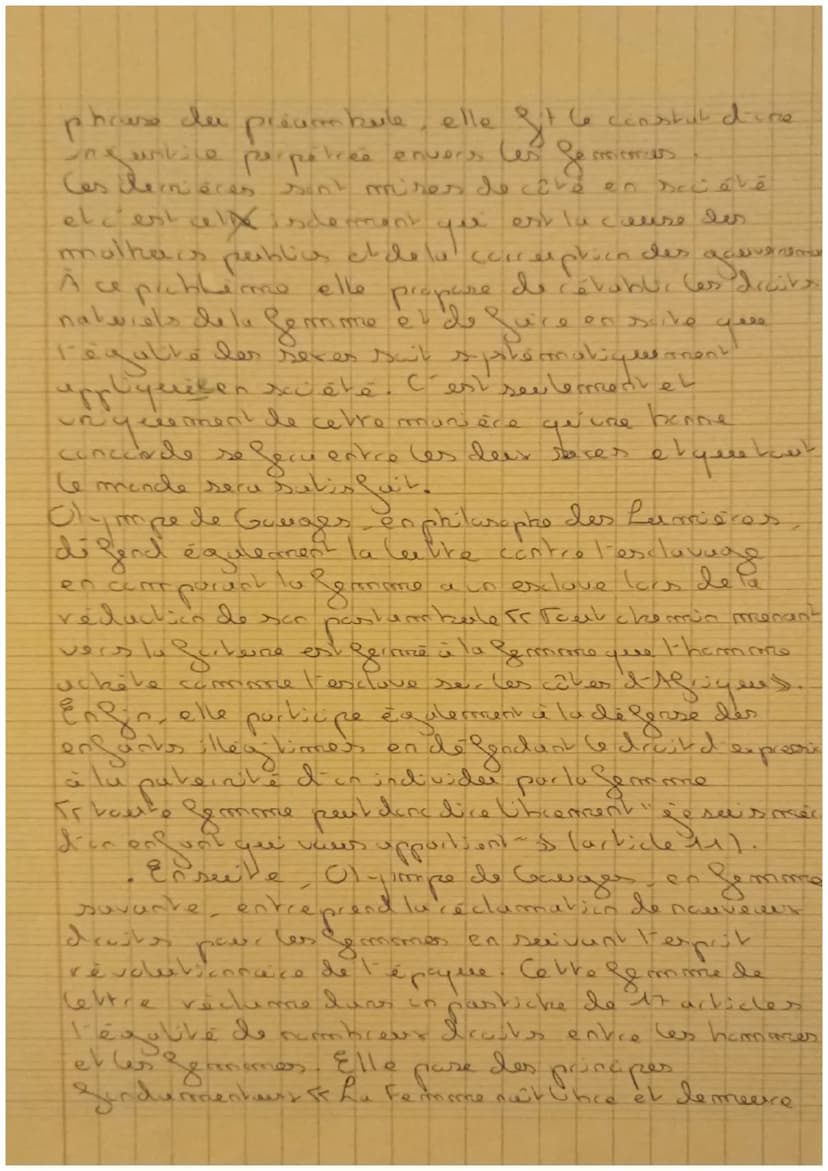 phrase du préambule, elle fait le constat d'une
injustice perpétrée envers les femmes.
Ces dernières sont mises de côté en société
et c'est cet isolement qui est la cause des
malheurs publics et de la corruption des gouverneme
À ce problème elle propose de rétablir les droits
naturels de la femme et de faire en sorte que
l'égalité des sexes soit systématiquement
appliquée en société. C'est seulement et
uniquement de cette manière qu'une bonne
concorde se fera entre les deux sexes et que tout
le monde sera satisfait.
Olympe de Gouges, en philosophe des Lumières,
défend également la lutte contre l'esclavage
en comparant la femme a un esclave lors de la
rédaction de son postambule « Tout chemin menant
vers la fortune est fermé à la femme que l'homme
achète comme l'esclave sur les côtes d'Afriques».
Enfin, elle participe également à la défense des
enfants illégitimes en défendant le droit d'expressi
à la paternité d'un individu par la femme
« toute femme peut donc dire librement "je suis mèr
d'un enfant qui vous appartient" » (article 11).
. Ensuite, Olympe de Gouges, en femme
savante, entreprend la réclamation de nouveaux
droits pour les femmes en suivant l'esprit
révolutionnaire de l'époque. Cette femme de
lettre réclame dans un pastiche de 17 articles
l'égalité de nombreux droits entre les hommes
et les femmes. Elle pose des principes
fondamentaux « La Femme naît libre et demeure